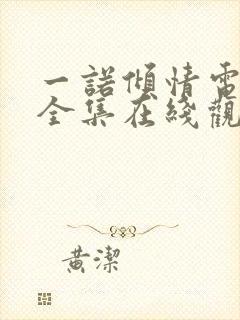 一諾傾情電
全集在綫觀
黄潔